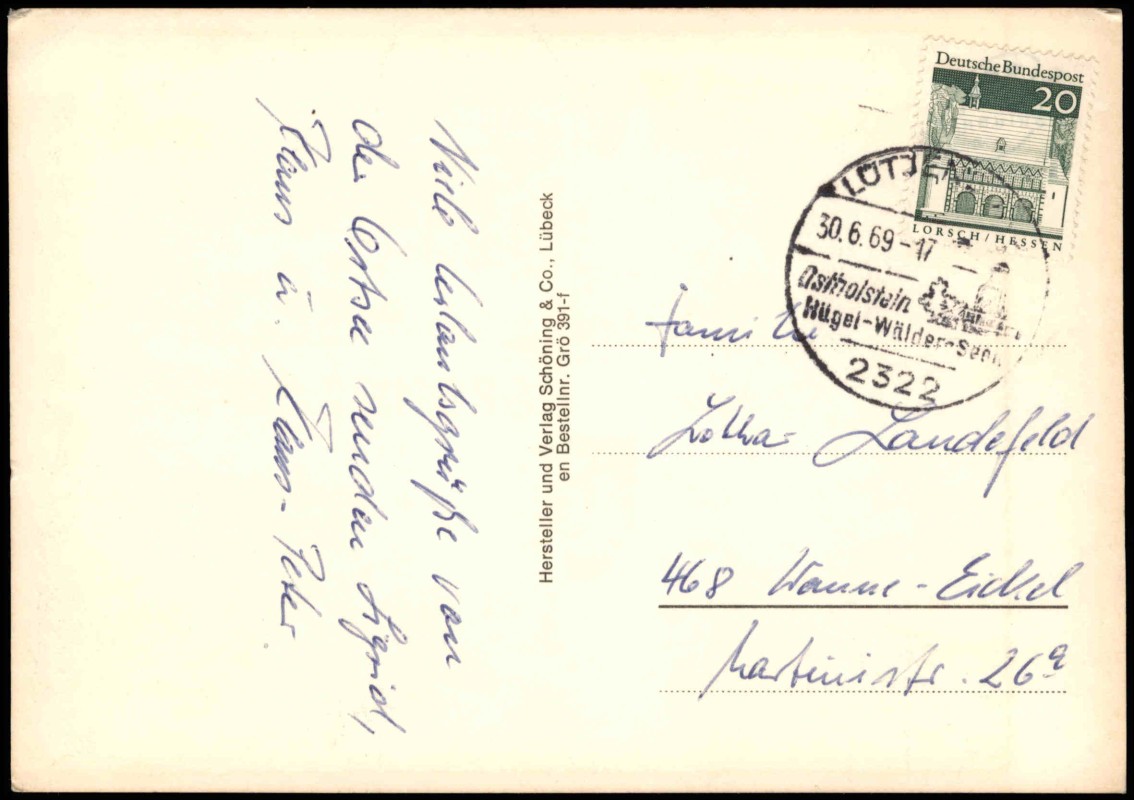 Viele Urlaubsgrüße von
der Ostsee senden Sigrid,
Klaus u. Klaus-Peter
Hersteller und Verlag Schöning & Co., Lübeck
en Bestellnr. Grö 391-f
Deutsche Bundespost
20
LORSCH/HESSEN
LÜTJEN
30.6.69-17
Ostholstein
Hügel-Wälder-Seen
2322
Familie
Lothar Landefeld
468 Wanne-Eickel
Martinistr. 26a